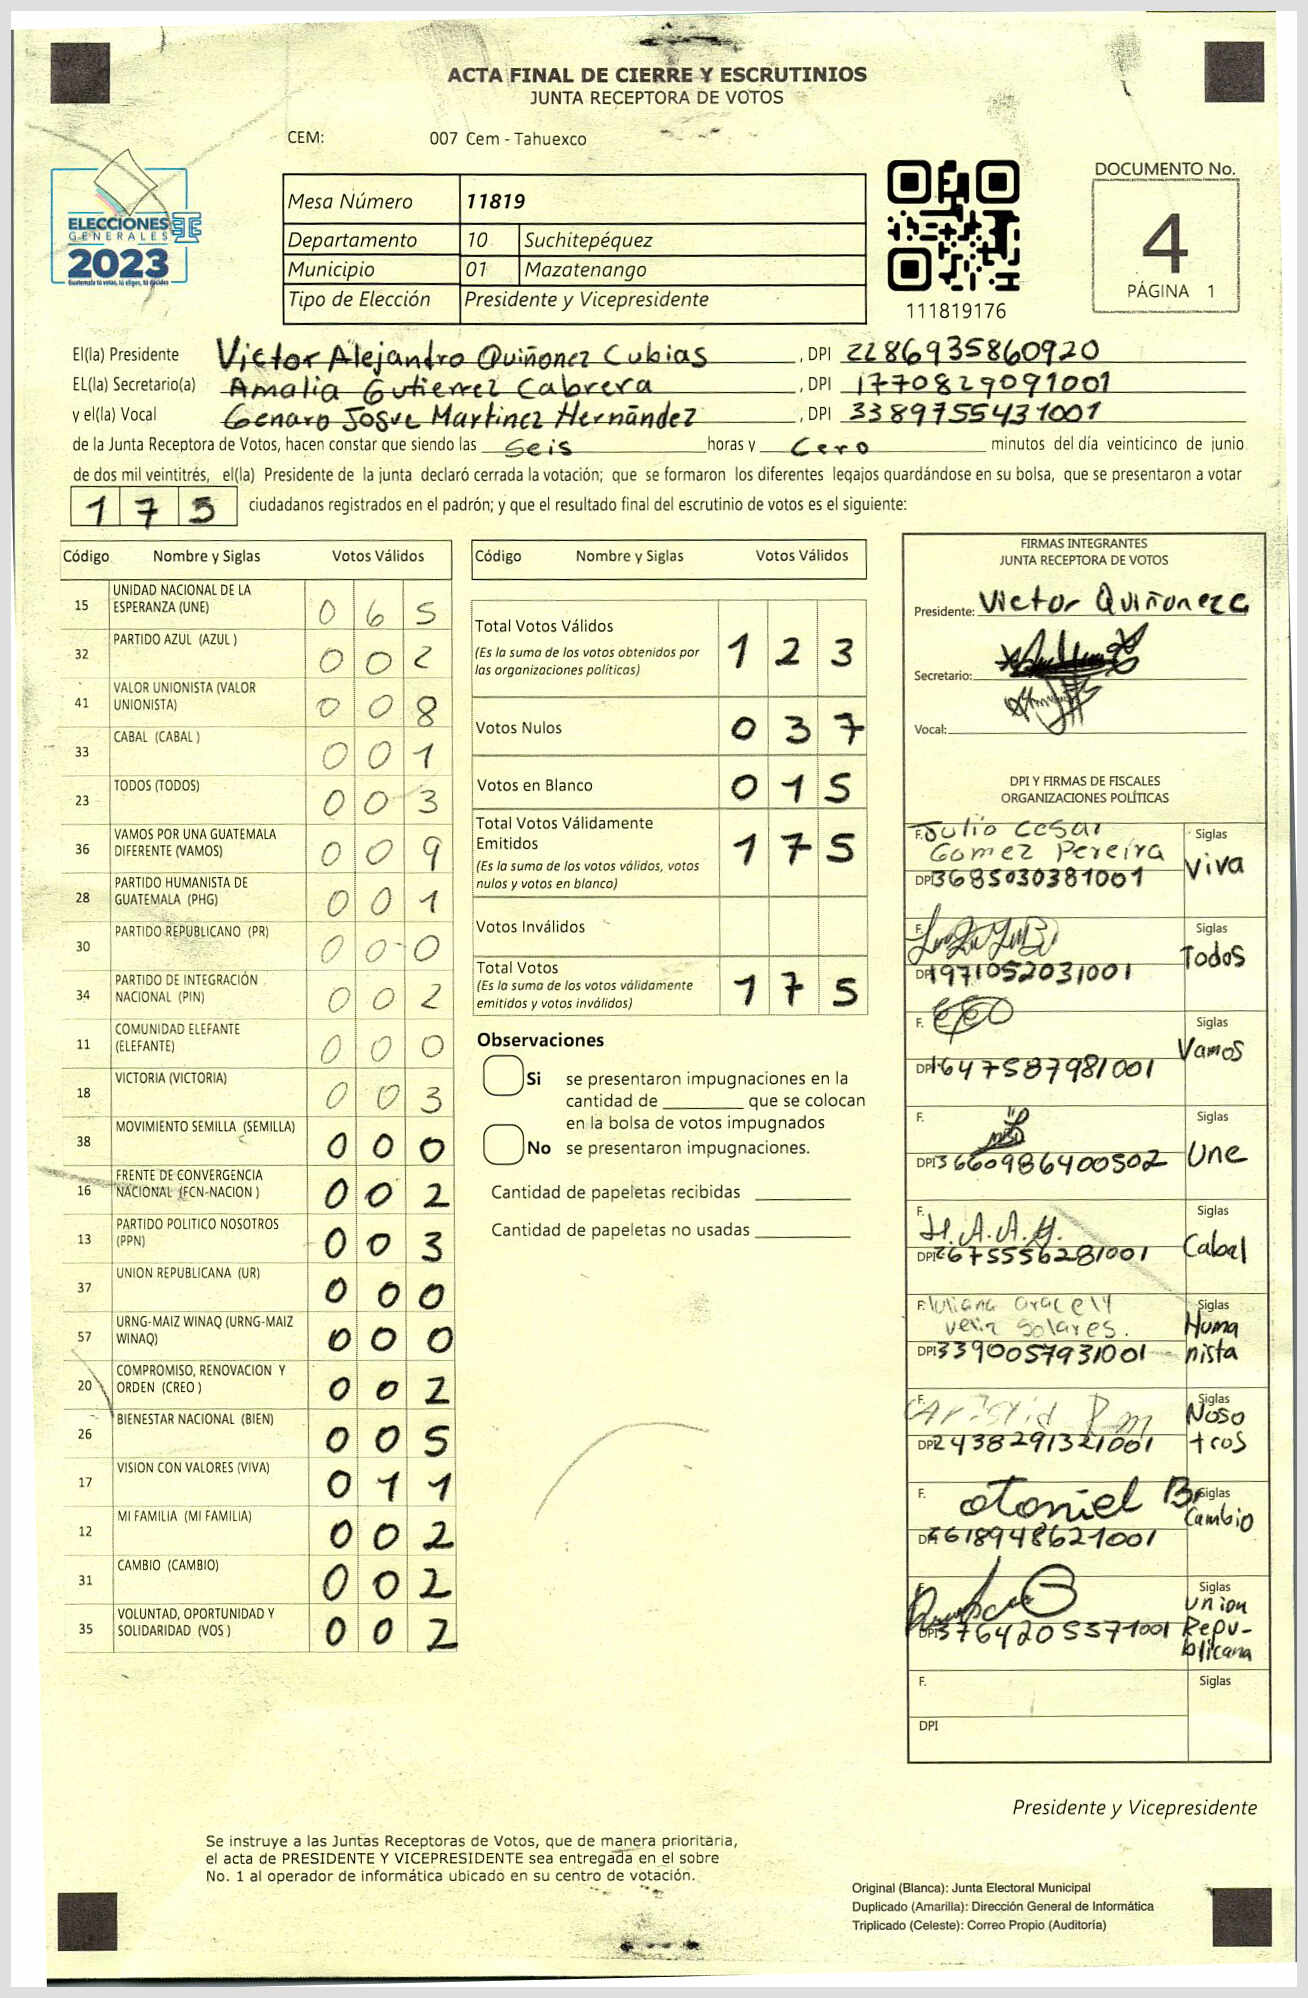 ACTA FINAL DE CIERRE Y ESCRUTINIOS
JUNTA RECEPTORA DE VOTOS
CEM: 007 Cem - Tahuexco
ELECCIONES
GENERALES
2023
Guatemala tú votas, tú eliges, tú decides
Mesa Número 11819
Departamento 10 Suchitepéquez
Municipio 01 Mazatenango
Tipo de Elección Presidente y Vicepresidente
111819176
DOCUMENTO No.
4
PÁGINA 1
El(la) Presidente Victor Alejandro Quiñonez Cubias, DPI 2286935860920
EL(la) Secretario(a) Amalia Gutierrez Cabrera, DPI 1770829091001
y el(la) Vocal Genaro Josue Martinez Hernández, DPI 3389755431001
de la Junta Receptora de Votos, hacen constar que siendo las seis horas y cero minutos del día veinticinco de junio
de dos mil veintitrés, el(la) Presidente de la junta declaró cerrada la votación; que se formaron los diferentes legajos guardándose en su bolsa, que se presentaron a votar
175 ciudadanos registrados en el padrón; y que el resultado final del escrutinio de votos es el siguiente:
Código Nombre y Siglas Votos Válidos
15 UNIDAD NACIONAL DE LA ESPERANZA (UNE) 0 6 5
32 PARTIDO AZUL (AZUL ) 0 0 2
41 VALOR UNIONISTA (VALOR UNIONISTA) 0 0 8
33 CABAL (CABAL ) 0 0 1
23 TODOS (TODOS) 0 0 3
36 VAMOS POR UNA GUATEMALA DIFERENTE (VAMOS) 0 0 9
28 PARTIDO HUMANISTA DE GUATEMALA (PHG) 0 0 1
30 PARTIDO REPUBLICANO (PR) 0 0 0
34 PARTIDO DE INTEGRACIÓN NACIONAL (PIN) 0 0 2
11 COMUNIDAD ELEFANTE (ELEFANTE) 0 0 0
18 VICTORIA (VICTORIA) 0 0 3
38 MOVIMIENTO SEMILLA (SEMILLA) 0 0 0
16 FRENTE DE CONVERGENCIA NACIONAL (FCN-NACION ) 0 0 2
13 PARTIDO POLITICO NOSOTROS (PPN) 0 0 3
37 UNION REPUBLICANA (UR) 0 0 0
57 URNG-MAIZ WINAQ (URNG-MAIZ WINAQ) 0 0 0
20 COMPROMISO, RENOVACION Y ORDEN (CREO ) 0 0 2
26 BIENESTAR NACIONAL (BIEN) 0 0 5
17 VISION CON VALORES (VIVA) 0 1 1
12 MI FAMILIA (MI FAMILIA) 0 0 2
31 CAMBIO (CAMBIO) 0 0 2
35 VOLUNTAD, OPORTUNIDAD Y SOLIDARIDAD (VOS ) 0 0 2
Código Nombre y Siglas Votos Válidos
Total Votos Válidos 1 2 3
(Es la suma de los votos obtenidos por
las organizaciones políticas)
Votos Nulos 0 3 7
Votos en Blanco 0 1 5
Total Votos Válidamente
Emitidos 1 7 5
(Es la suma de los votos válidos, votos
nulos y votos en blanco)
Votos Inválidos
Total Votos 1 7 5
(Es la suma de los votos válidamente
emitidos y votos inválidos)
Observaciones
Si se presentaron impugnaciones en la
cantidad de ________ que se colocan
en la bolsa de votos impugnados
No se presentaron impugnaciones.
Cantidad de papeletas recibidas
Cantidad de papeletas no usadas
FIRMAS INTEGRANTES
JUNTA RECEPTORA DE VOTOS
Presidente: Victor Quiñonez C
Secretario:
Vocal:
DPI Y FIRMAS DE FISCALES
ORGANIZACIONES POLÍTICAS
F. Julio Cesar Gomez Pereira Siglas Viva
DPI 3685030381001
F. Siglas Todos
DPI 1971052031001
F. Siglas Vamos
DPI 1647587981001
F. Siglas Une
DPI 3660986400502
F. H.A.A.M. Siglas Cabal
DPI 2675556281001
F. Juliana aracely veliz Solares. Siglas Humanista
DPI 3390057931001
F. Siglas Nosotros
DPI 2438291321001
F. otoniel B. Siglas Cambio
DPI 2618948621001
F. Siglas Union Republicana
DPI 3764205371001
F. Siglas
DPI
Presidente y Vicepresidente
Se instruye a las Juntas Receptoras de Votos, que de manera prioritaria,
el acta de PRESIDENTE Y VICEPRESIDENTE sea entregada en el sobre
No. 1 al operador de informática ubicado en su centro de votación.
Original (Blanca): Junta Electoral Municipal
Duplicado (Amarilla): Dirección General de Informática
Triplicado (Celeste): Correo Propio (Auditoría)